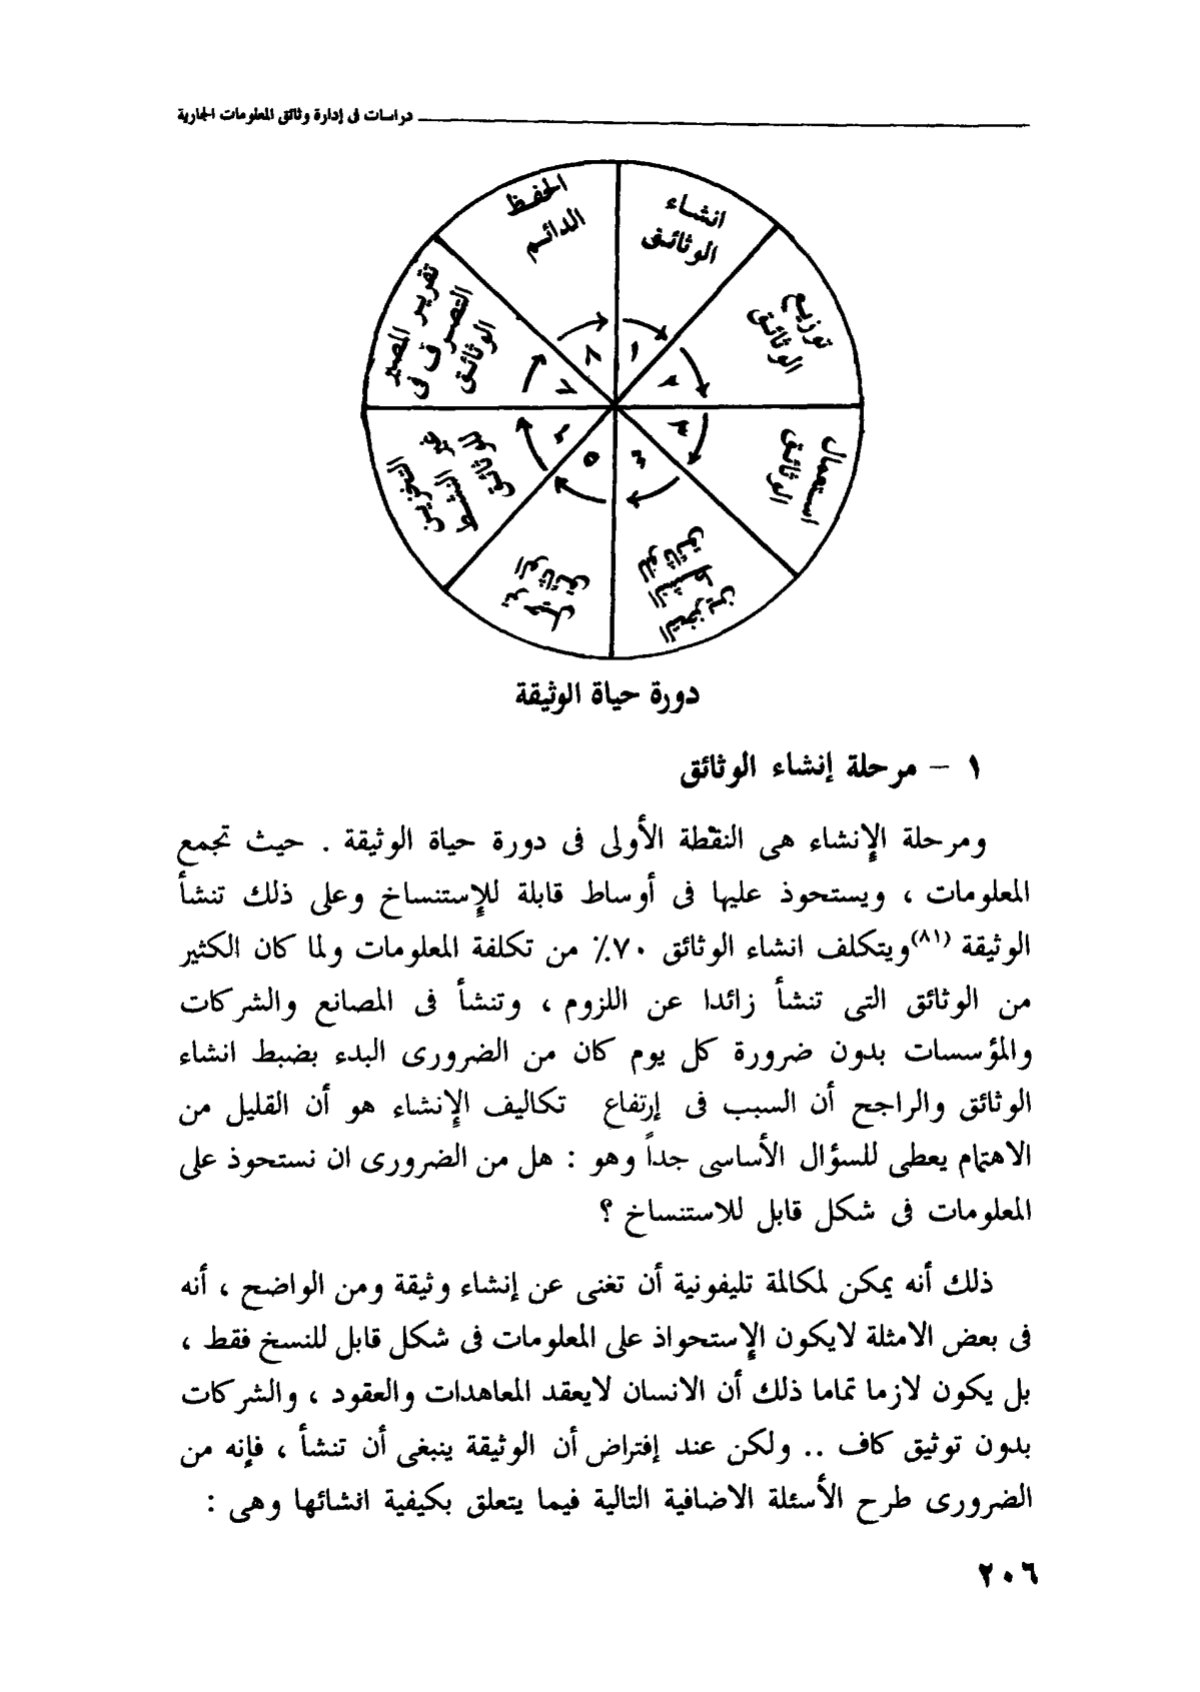 دراسات فى إدارة وثائق المعلومات الجارية
انشاء
الوثائق
١
توزيع
الوثائق
٢
استعمال
الوثائق
٣
التخزين
النشط
للوثائق
٤
ترحيل
الوثائق
٥
التخزين
غير النشط
للوثائق
٦
تقرير المصير
التصرف فى
الوثائق
٧
الحفظ
الدائم
٨
دورة حياة الوثيقة
١ – مرحلة إنشاء الوثائق
ومرحلة الإنشاء هى النقطة الأولى فى دورة حياة الوثيقة . حيث تجمع
المعلومات ، ويستحوذ عليها فى أوساط قابلة للإستنساخ وعلى ذلك تنشأ
الوثيقة (٨١) ويتكلف انشاء الوثائق ٧٠٪ من تكلفة المعلومات ولما كان الكثير
من الوثائق التى تنشأ زائدا عن اللزوم ، وتنشأ فى المصانع والشركات
والمؤسسات بدون ضرورة كل يوم كان من الضرورى البدء بضبط انشاء
الوثائق والراجح أن السبب فى إرتفاع تكاليف الإنشاء هو أن القليل من
الاهتمام يعطى للسؤال الأساسى جداً وهو : هل من الضرورى ان نستحوذ على
المعلومات فى شكل قابل للاستنساخ ؟
ذلك أنه يمكن لمكالمة تليفونية أن تغنى عن إنشاء وثيقة ومن الواضح ، أنه
فى بعض الامثلة لايكون الإستحواذ على المعلومات فى شكل قابل للنسخ فقط ،
بل يكون لازما تماما ذلك أن الانسان لايعقد المعاهدات والعقود ، والشركات
بدون توثيق كاف .. ولكن عند إفتراض أن الوثيقة ينبغى أن تنشأ ، فإنه من
الضرورى طرح الأسئلة الاضافية التالية فيما يتعلق بكيفية انشائها وهى :
٢٠٦